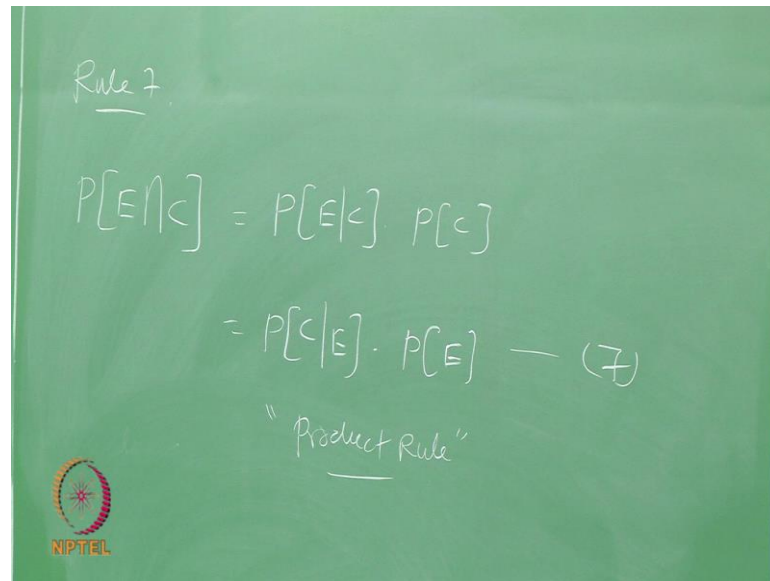 Rule 7.
P[E∩C] = P[E|C] . P[C]
= P[C|E] . P[E] — (7)
"Product Rule"
NPTEL